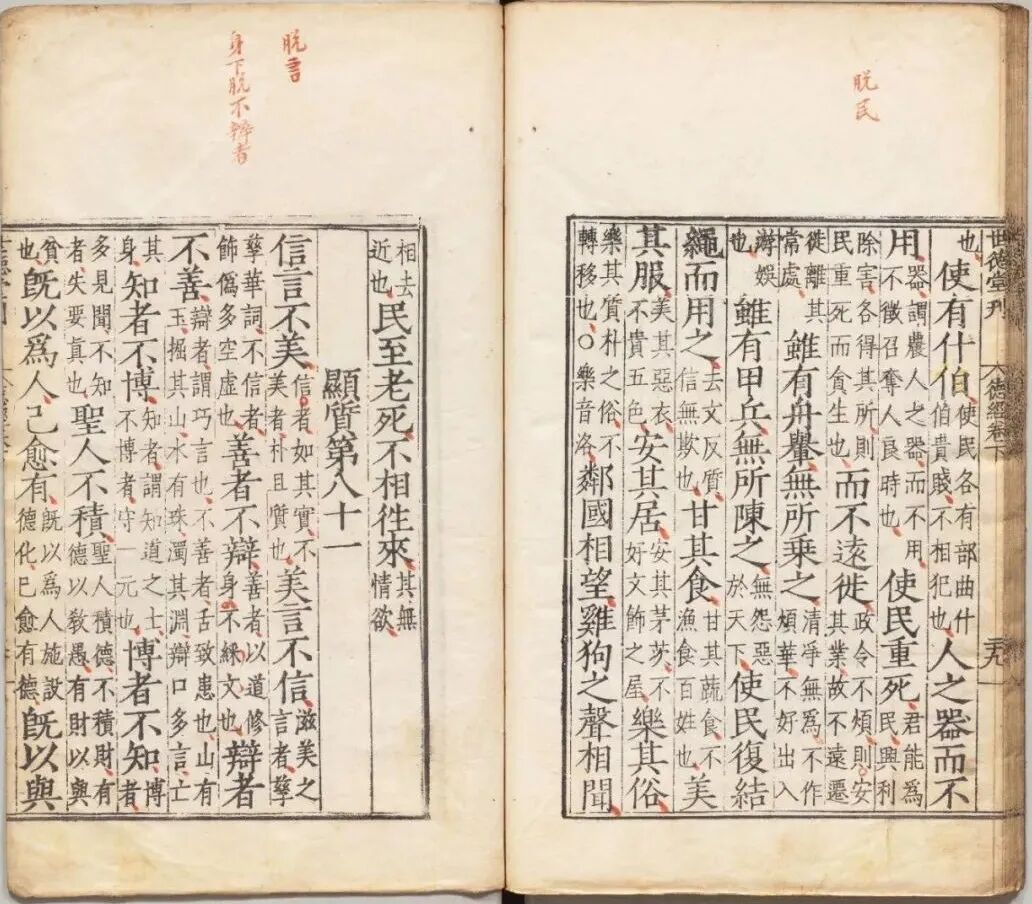 脫民
世德堂刊
德經卷下
也使有什伯使民各有部曲什伯貴賤不相犯也人之器而不
用器謂農人之器而不用不徵召奪人良時也使民重死君能爲民興利
除害各得其所則民重死而貪生也而不遠徙政令不煩則安其業故不遠遷
徙離其常處雖有舟轝無所乘之清凈無爲不作煩華不好出入
游娛也雖有甲兵無所陳之無怨惡於天下使民復結
繩而用之去文反質信無欺也甘其食甘其蔬食不漁食百姓也美
其服美其惡衣不貴五色安其居安其茅茨不好文飾之屋樂其俗
樂其質朴之俗不轉移也○樂音洛鄰國相望雞狗之聲相聞
脫言
身下脫不辯者
相去近也民至老死不相徃來其無情欲
顯質第八十一
信言不美信者如其實不美者朴且質也美言不信滋美之言者孳
孳華詞不信者飾僞多空虛也善者不辯善者以道修身不綵文也辯者
不善辯者謂巧言也不善者舌致患也山有玉掘其山水有珠濁其淵辯口多言亡
其身知者不博知者謂知道之士不博者守一元也博者不知博者
多見聞不知者失要真也聖人不積聖人積德不積財有德以教愚有財以與
貧也旣以爲人己愈有旣以爲人施設德化已愈有德旣以與